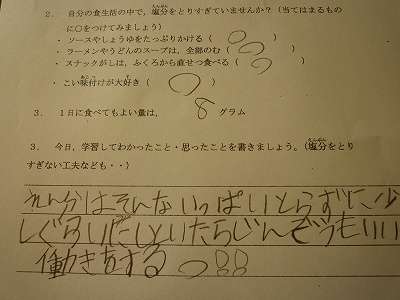 2. 自分の食生活の中で、塩分をとりすぎていませんか？（当てはまるもの
に○をつけてみましょう）
・ソースやしょうゆをたっぷりかける（ ○ ）
・ラーメンやうどんのスープは、全部のむ（ ○ ）
・スナックがしは、ふくろから直せつ食べる（ ○ ）
・こい味付けが大好き（ ○ ）
3. 1日に食べてもよい量は、 8 グラム
3. 今日、学習してわかったこと・思ったことを書きましょう。（塩分をとり
すぎない工夫なども・・）
えん分はそんないっぱいとらずに、少
しぐらいだしといたらじんぞうもいい
働きをする